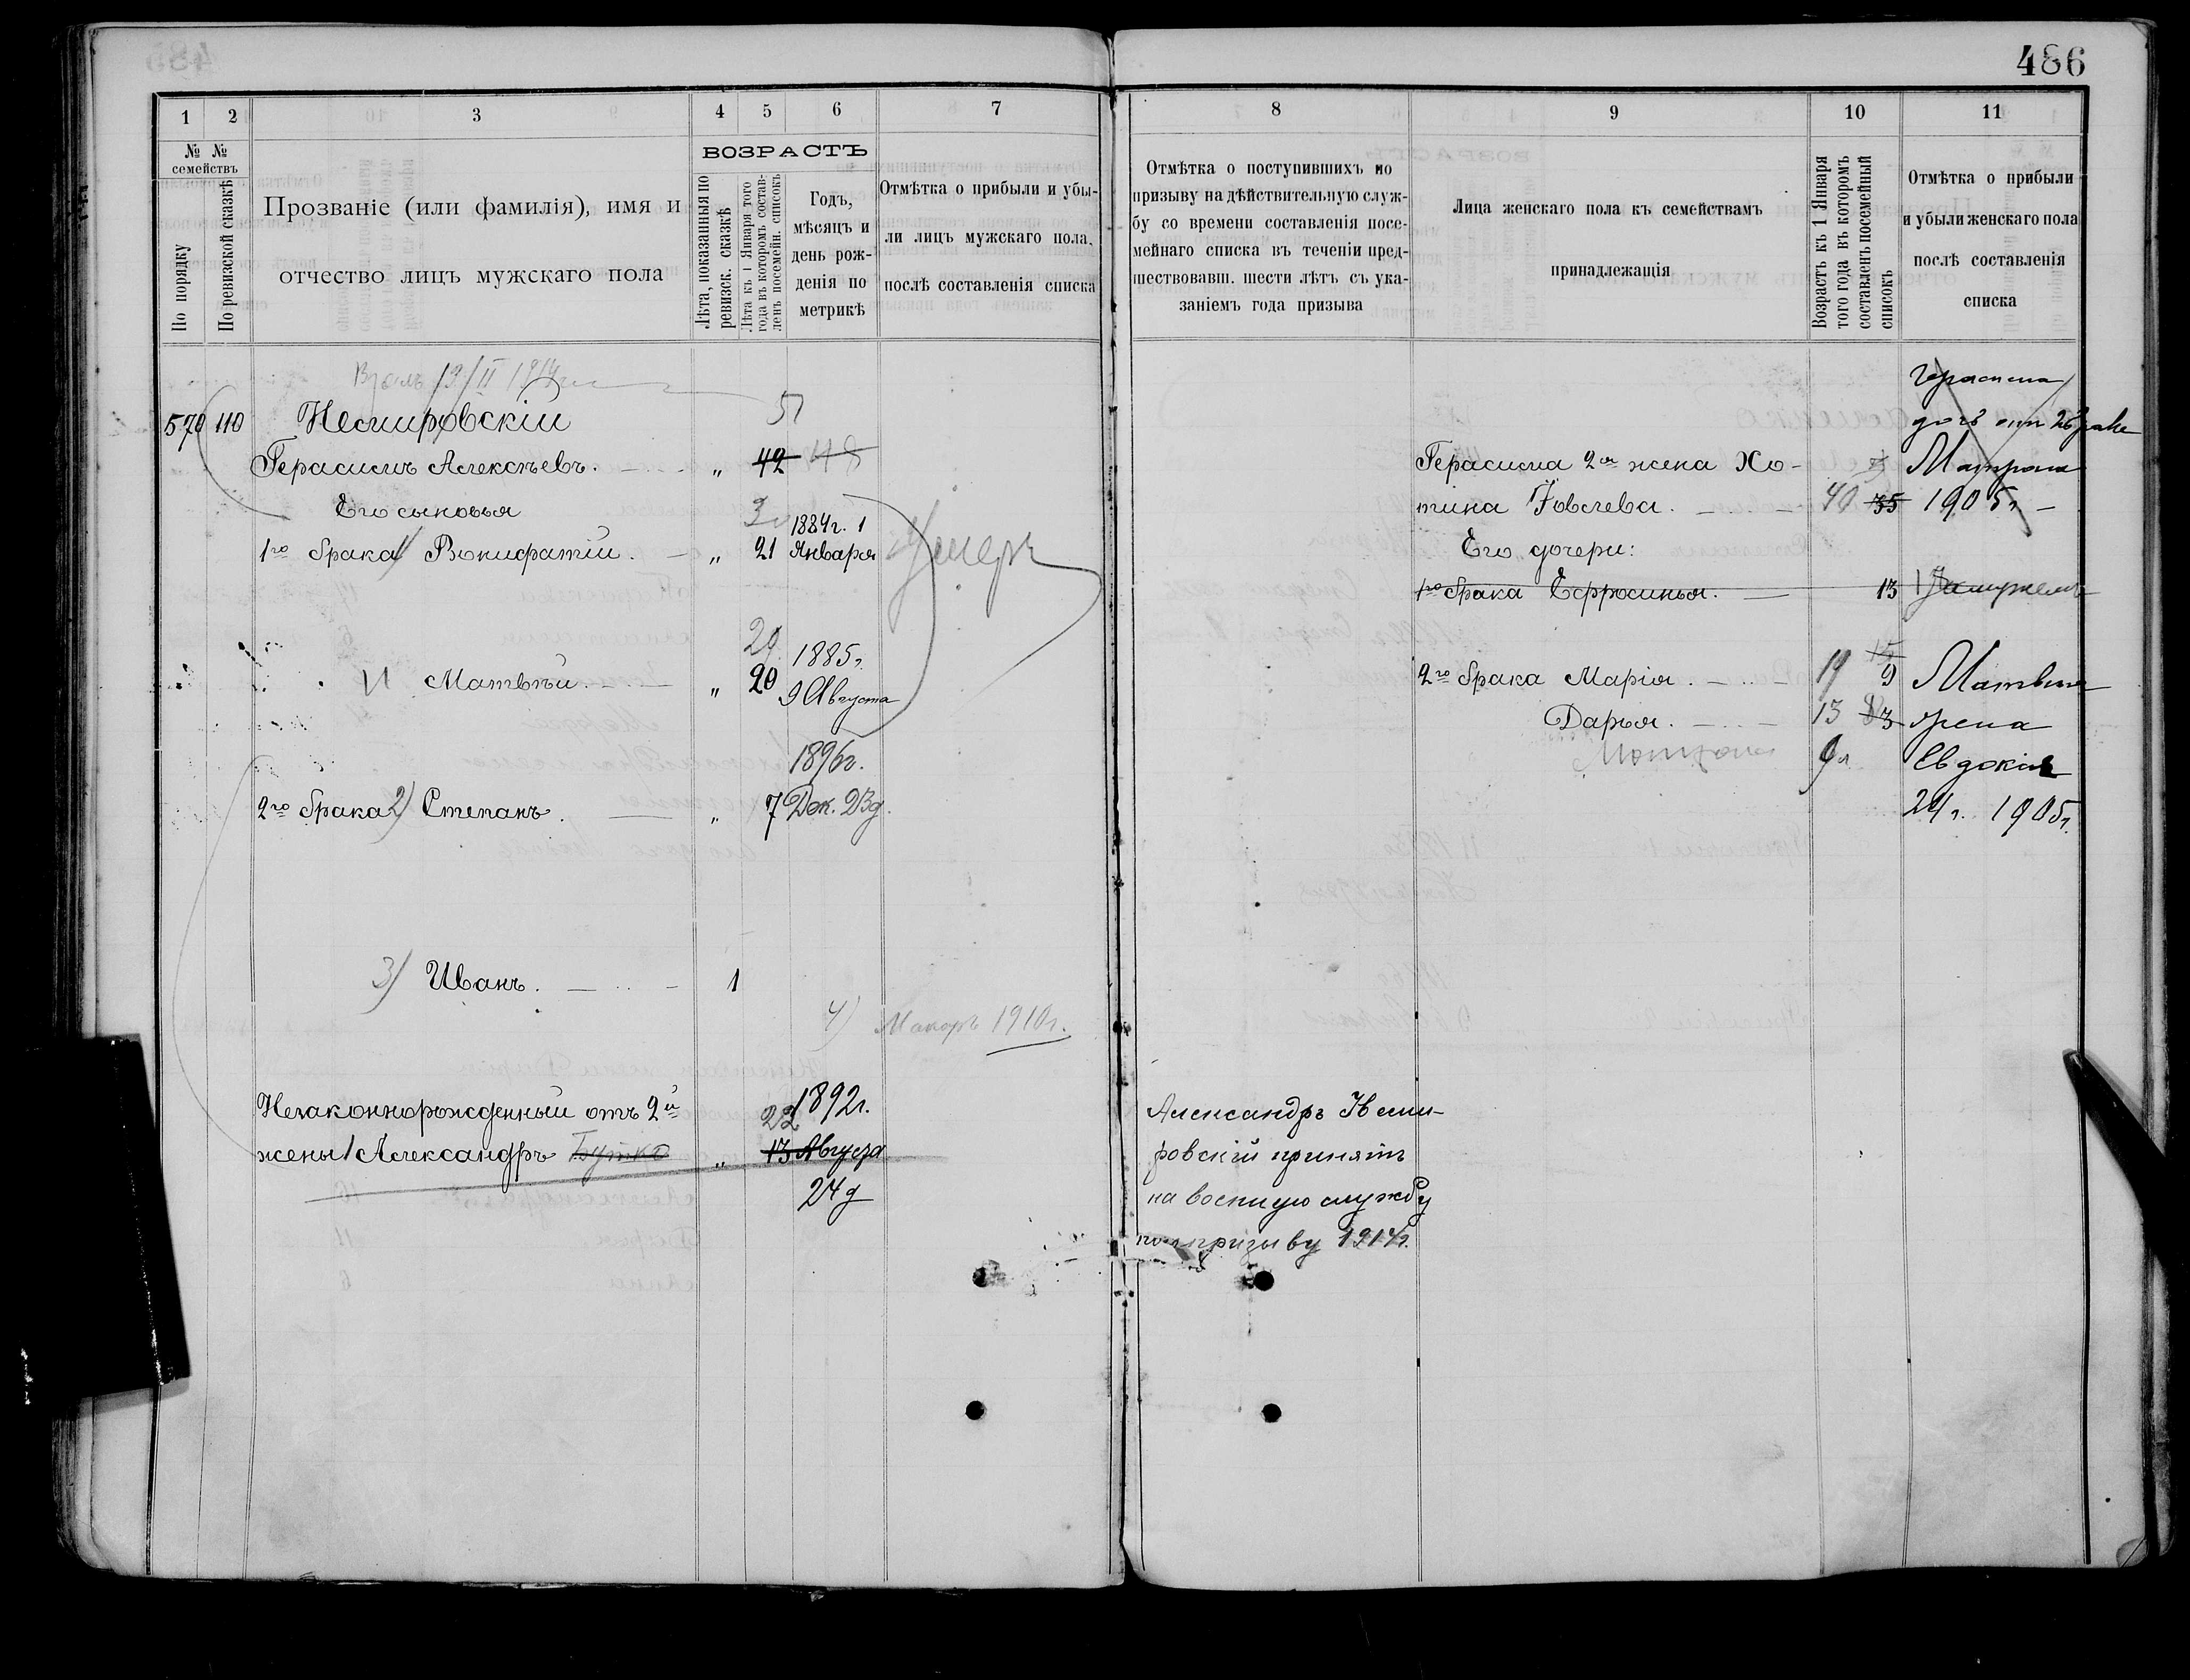 486
1 2 3 4 5 6 7
№ № семействъ
По порядку
По ревизской сказкѣ
Прозваніе (или фамилія), имя и
отчество лицъ мужскаго пола
ВОЗРАСТЪ
Лѣта, показанныя по
ревизск. сказкѣ
Лѣта къ 1 Января того
года въ которомъ состав-
ленъ посемейн. списокъ
Годъ,
мѣсяцъ и
день рож-
денія по
метрикѣ
Отмѣтка о прибыли и убы-
ли лицъ мужскаго пола,
послѣ составленія списка
13/II 1914
570 110 Немировскій 51
Герасимъ Алексѣевъ. „ 42 48
Его сыновья
1го брака 1/ Вонифатій. „ 21 1884г. 1 Января Умеръ
29 1885г.
Матвѣй. „ 20 9 Августа
1896г.
2го брака 2) Степанъ. „ 7 Дек. 23д.
3) Иванъ. 1
4) Макаръ 1910г.
Незаконнорожденный отъ 2й 22 1892г.
жены 1 Александръ Бутко „ 13 Августа
24д
8 9 10 11
Отмѣтка о поступившихъ по
призыву на дѣйствительную служ-
бу со времени составленія посе-
мейнаго списка въ теченіи пред-
шествовавш. шести лѣтъ съ ука-
заніемъ года призыва
Лица женскаго пола къ семействамъ
принадлежащія
Возрастъ къ 1 Января
того года въ которомъ
составленъ посемейный
списокъ
Отмѣтка о прибыли
и убыли женскаго пола
послѣ составленія
списка
Герасима
дочь отъ 2 брака
Герасима 2я жена Хо- Матрона
тина Іовлева. 40 35 1905г. -
Его дочери:
1го брака Ефросинья. 13 Замужемъ
15
2го брака Марія. 19 9 Матвѣя
Дарья. 13 3 жена
Матрона 9л Евдокія
24г. 1905г.
Александръ Неми-
ровскій принятъ
на военную службу
по призыву 1914г.